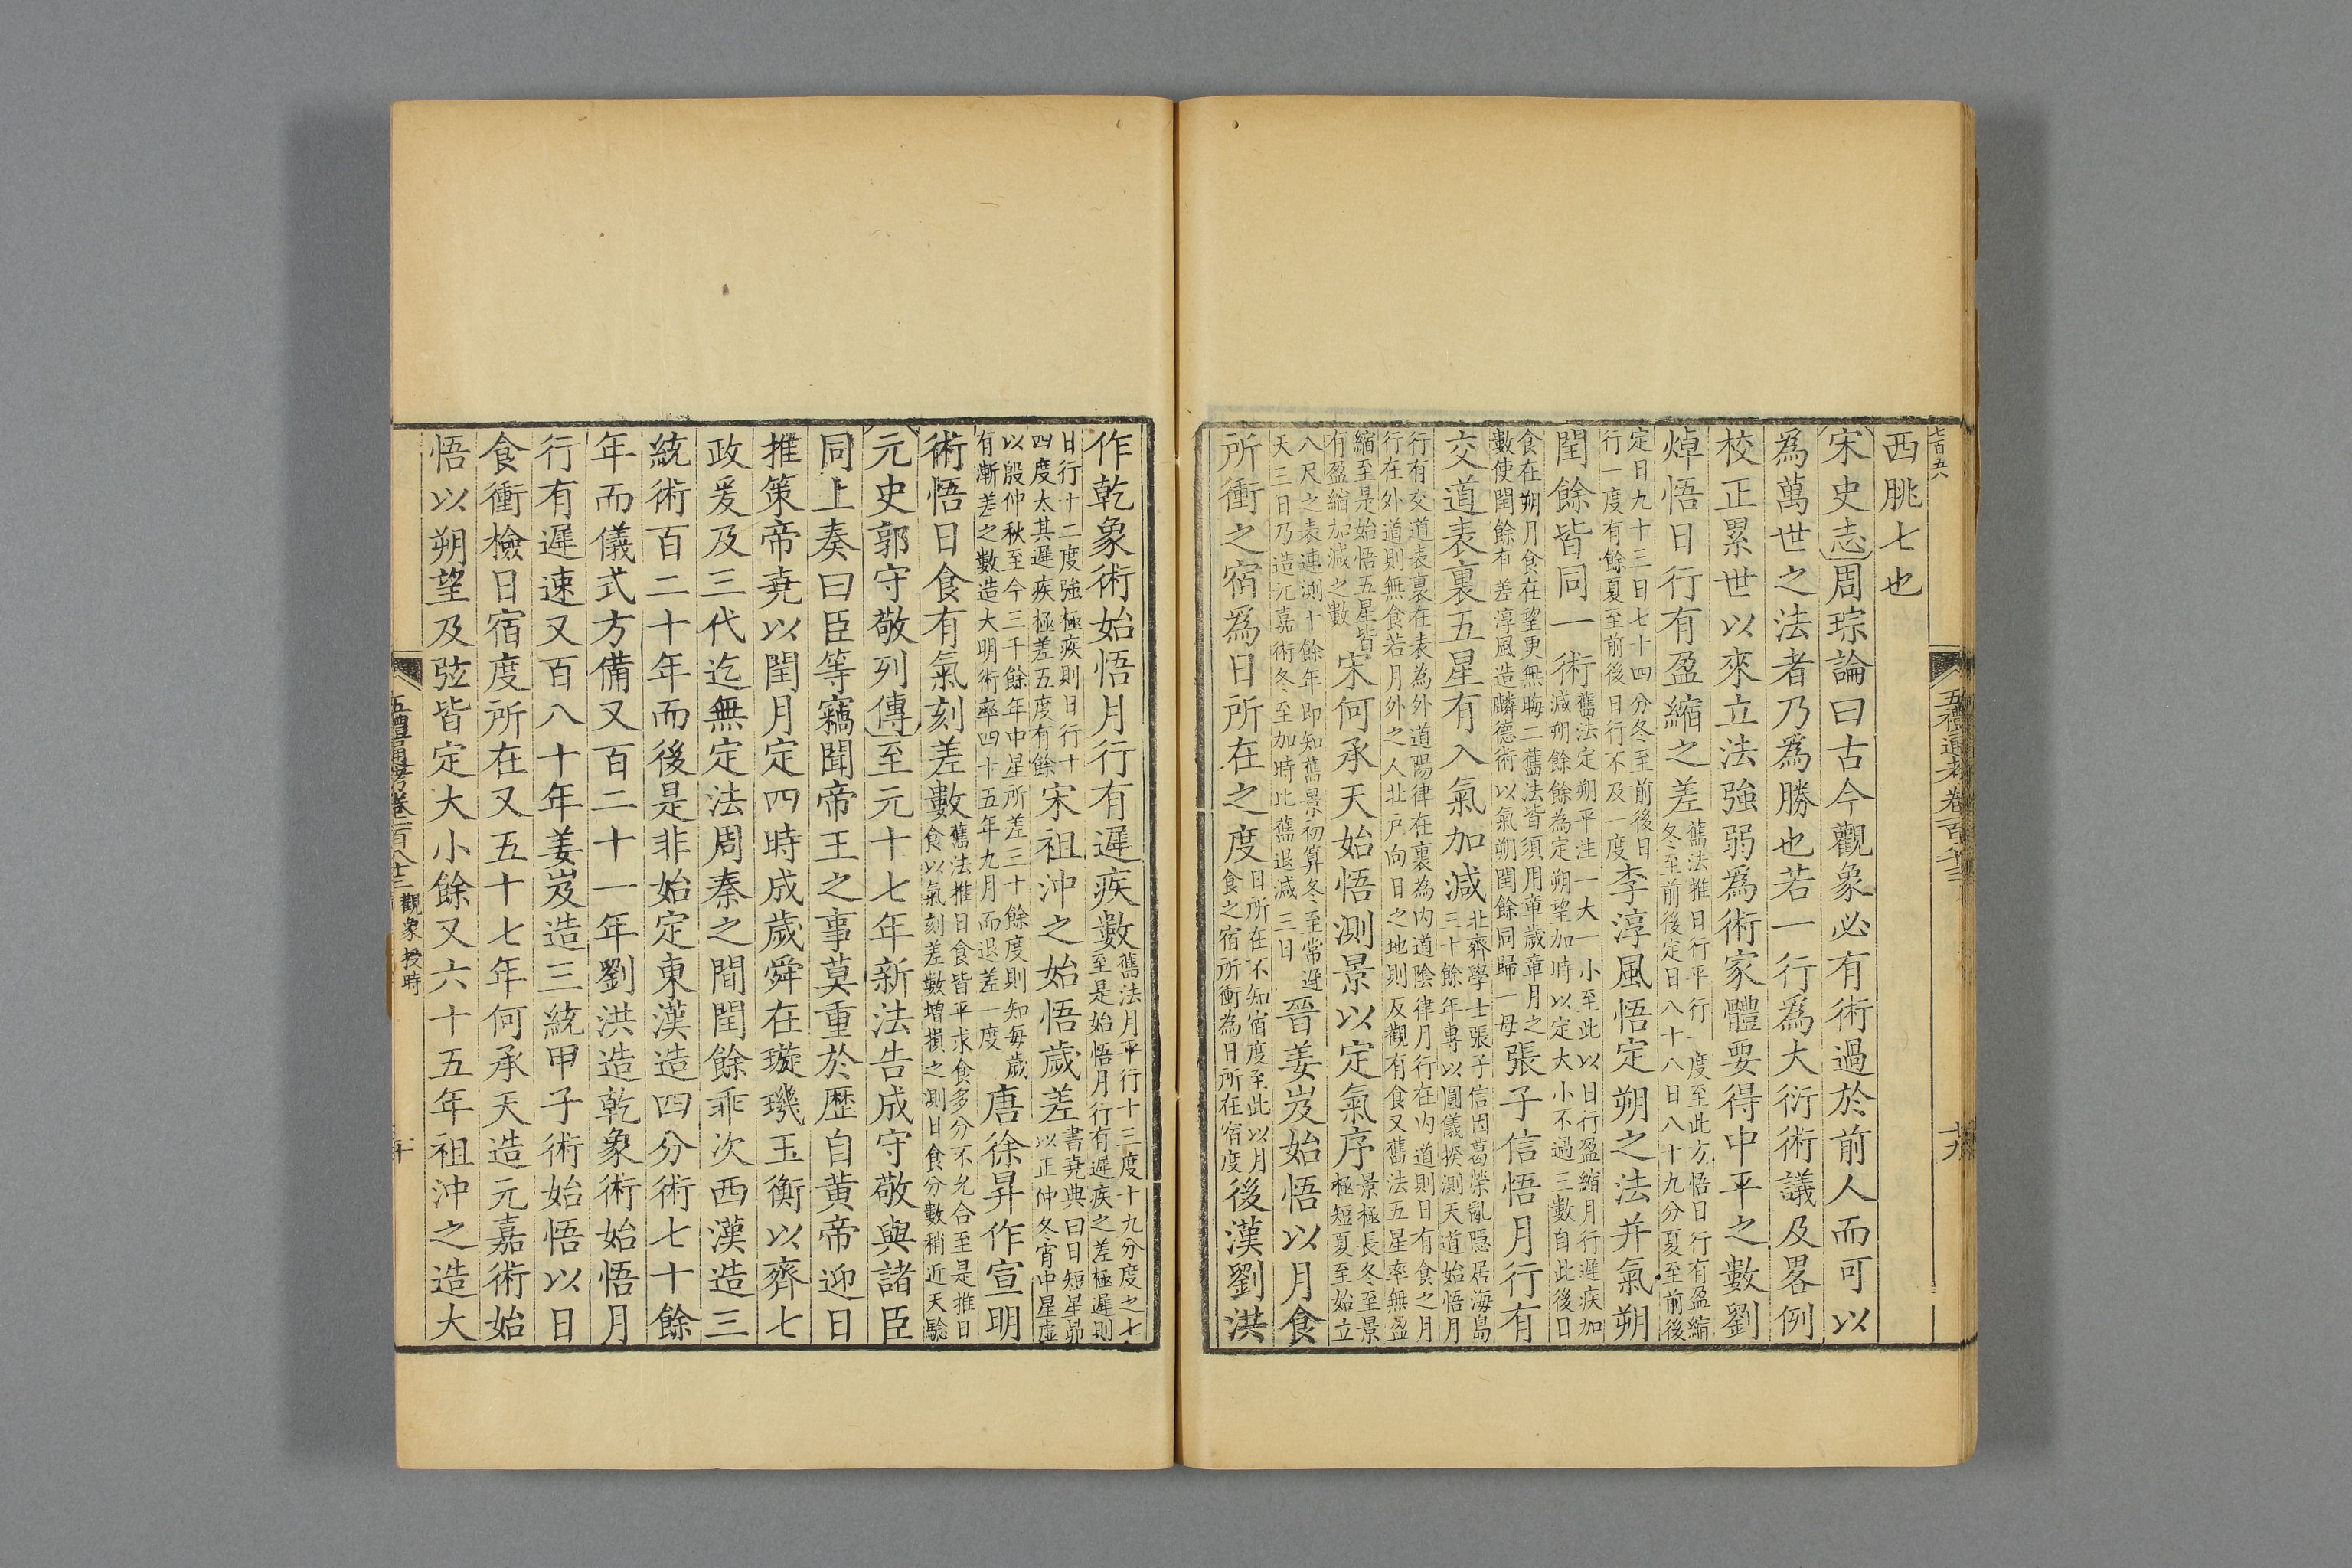 七百五八
五禮通考卷一百八十三
十九
西朓七也
宋史志周琮論曰古今觀象必有術過於前人而可以
為萬世之法者乃爲勝也若一行爲大衍術議及畧例
校正累世以來立法強弱爲術家體要得中平之數劉
焯悟日行有盈縮之差舊法推日行平行一度至此方悟日行有盈縮冬至前後定日八十八日八十九分夏至前後
定日九十三日七十四分冬至前後日行一度有餘夏至前後日行不及一度李淳風悟定朔之法并氣朔
閏餘皆同一術舊法定朔平注一大一小至此以日行盈縮月行遲疾加減朔餘餘為定朔望加時以定大小不過三數自此後日
食在朔月食在望更無晦二舊法皆須用章歲章月之數使閏餘有差淳風造麟德術以氣朔閏餘同歸一母張子信悟月行有
交道表裏五星有入氣加減北齊學士張子信因葛榮亂隱居海島三十餘年專以圓儀揆測天道始悟月
行有交道表裏在表為外道陽律在裏為内道陰律月行在内道則日有食之月行在外道則無食若月外之人北戶向日之地則反觀有食又舊法五星率無盈
縮至是始悟五星皆有盈縮加減之數宋何承天始悟測景以定氣序景極長冬至景極短夏至始立
八尺之表連測十餘年即知舊景初算冬至常遲天三日乃造元嘉術冬至加時比舊退減三日晉姜岌始悟以月食
所衝之宿爲日所在之度日所在不知宿度至此以月食之宿所衝為日所在宿度後漢劉洪
作乾象術始悟月行有遲疾數舊法月平行十三度十九分度之七至是始悟月行有遲疾之差極遲則
日行十二度強極疾則日行十四度太其遲疾極差五度有餘宋祖沖之始悟歲差書堯典曰日短星昴以正仲冬宵中星虛
以殷仲秋至今三千餘年中星所差三十餘度則知每歲有漸差之數造大明術率四十五年九月而退差一度唐徐昇作宣明
術悟日食有氣刻差數舊法推日食皆平求食多分不允合至是推日食以氣刻差數增損之測日食分數稍近天驗
元史郭守敬列傳至元十七年新法告成守敬與諸臣
同上奏曰臣等竊聞帝王之事莫重於歷自黃帝迎日
推策帝堯以閏月定四時成歲舜在璇璣玉衡以齊七
政爰及三代迄無定法周秦之間閏餘乖次西漢造三
統術百二十年而後是非始定東漢造四分術七十餘
年而儀式方備又百二十一年劉洪造乾象術始悟月
行有遲速又百八十年姜岌造三統甲子術始悟以日
食衝檢日宿度所在又五十七年何承天造元嘉術始
悟以朔望及弦皆定大小餘又六十五年祖沖之造大
五禮通考卷一百八十三 觀象授時